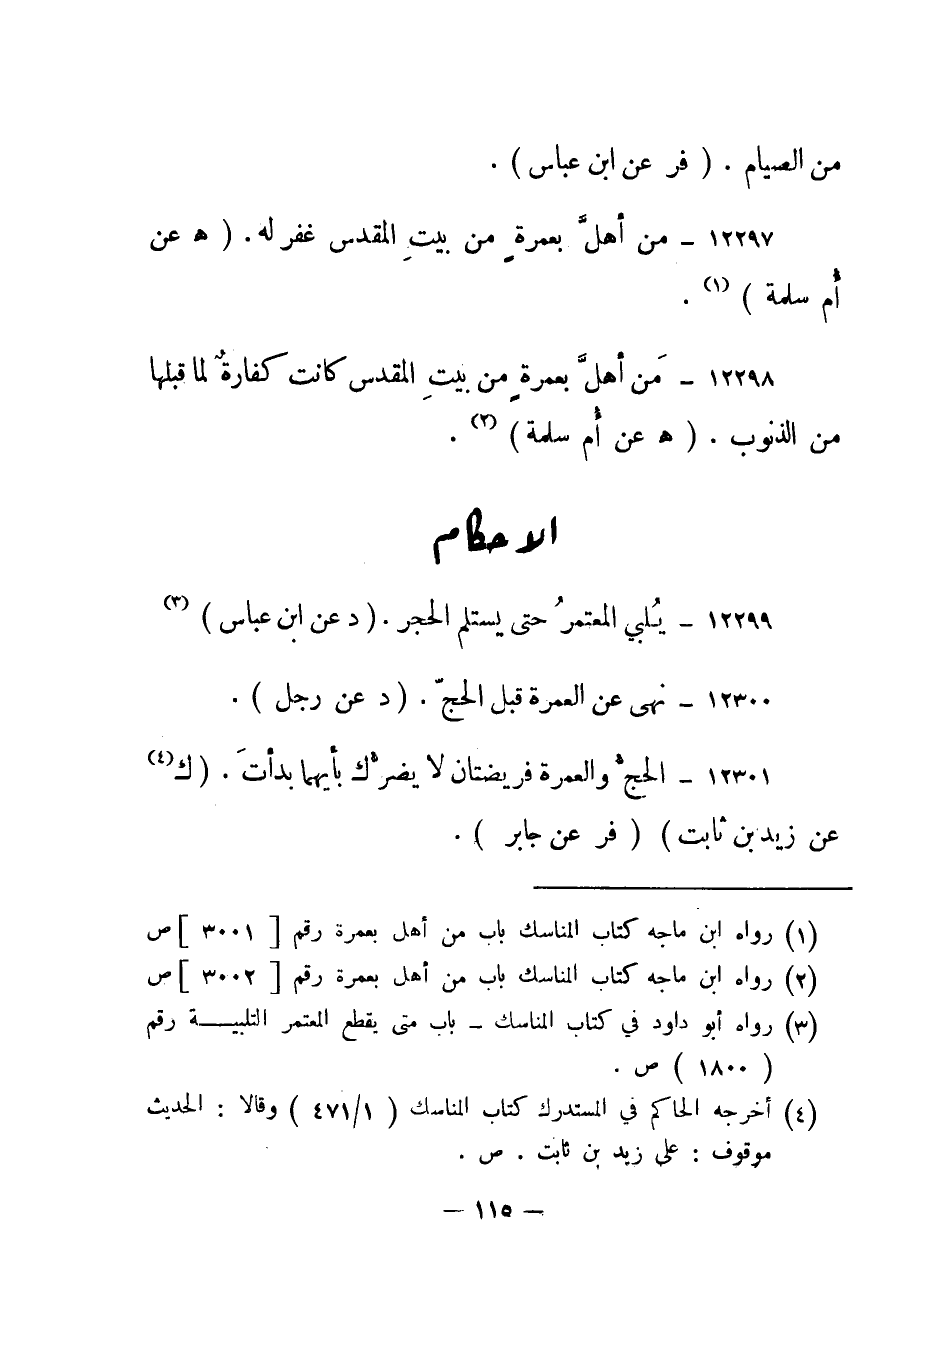 من الصيام . ( فر عن ابن عباس ) .
١٢٢٩٧ ـ من أهلَّ بعمرةٍ من بيتِ المقدس غفر له . ( ه عن
أُم سلمة ) (١) .
١٢٢٩٨ ـ مَن أهلَّ بعمرةٍ من بيتِ المقدس كانت كفارةٌ لما قبلها
من الذنوب . ( ه عن أُم سلمة ) (٢) .
الاحكام
١٢٢٩٩ ـ يُلبي المعتمرُ حتى يستلم الحجر . ( د عن ابن عباس ) (٣)
١٢٣٠٠ ـ نهى عن العمرة قبل الحجّ . ( د عن رجل ) .
١٢٣٠١ ـ الحجُّ والعمرة فريضتان لا يضرُّك بأيهما بدأتَ . ( ك (٤)
عن زيد بن ثابت ) ( فر عن جابر ) .
(١) رواه ابن ماجه كتاب المناسك باب من أهل بعمرة رقم [ ٣٠٠١ ] ص
(٢) رواه ابن ماجه كتاب المناسك باب من أهل بعمرة رقم [ ٣٠٠٢ ] ص
(٣) رواه أبو داود في كتاب المناسك ـ باب متى يقطع المعتمر التلبيـــة رقم
( ١٨٠٠ ) ص .
(٤) أخرجه الحاكم في المستدرك كتاب المناسك ( ٤٧١/١ ) وقالا : الحديث
موقوف : على زيد بن ثابت . ص .
— ١١٥ —